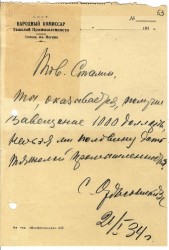 63
НАРОДНЫЙ КОМИССАР
Тяжелой Промышленности
193 г.
Тов. Сталин.
Ты, оказывается, получил
завещание 1000 долларов,
нельзя ли половину дать
тяжелой промышленности
С. Орджоникидзе
21/I 34 г.